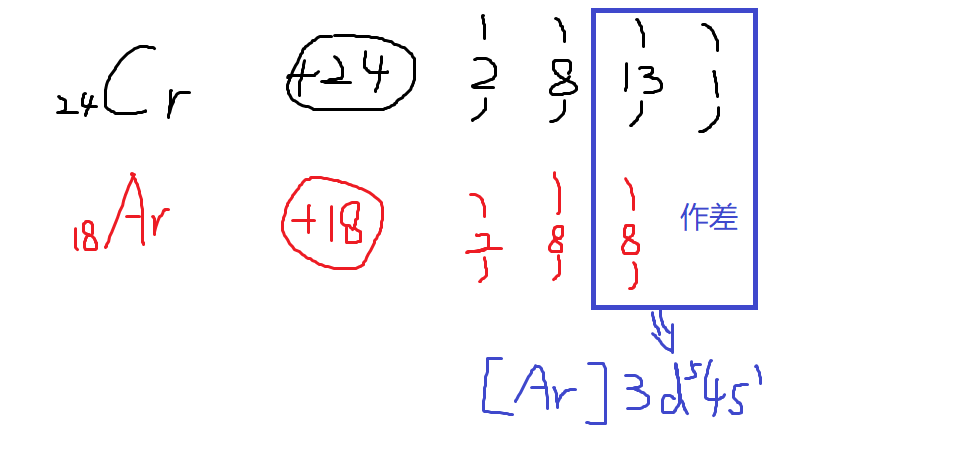 ₂₄Cr +24 2 8 13 1
₁₈Ar +18 2 8 8 作差
[Ar]3d⁵4s¹